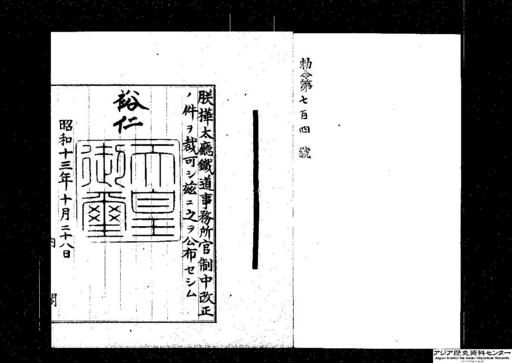 勅令第七百四號
朕樺太廳鐵道事務所官制中改正
ノ件ヲ裁可シ茲ニ之ヲ公布セシム
裕仁
天皇
御璽
昭和十三年十月二十八日
内閣
アジア歴史資料センター
Japan Center for Asian Historical Records